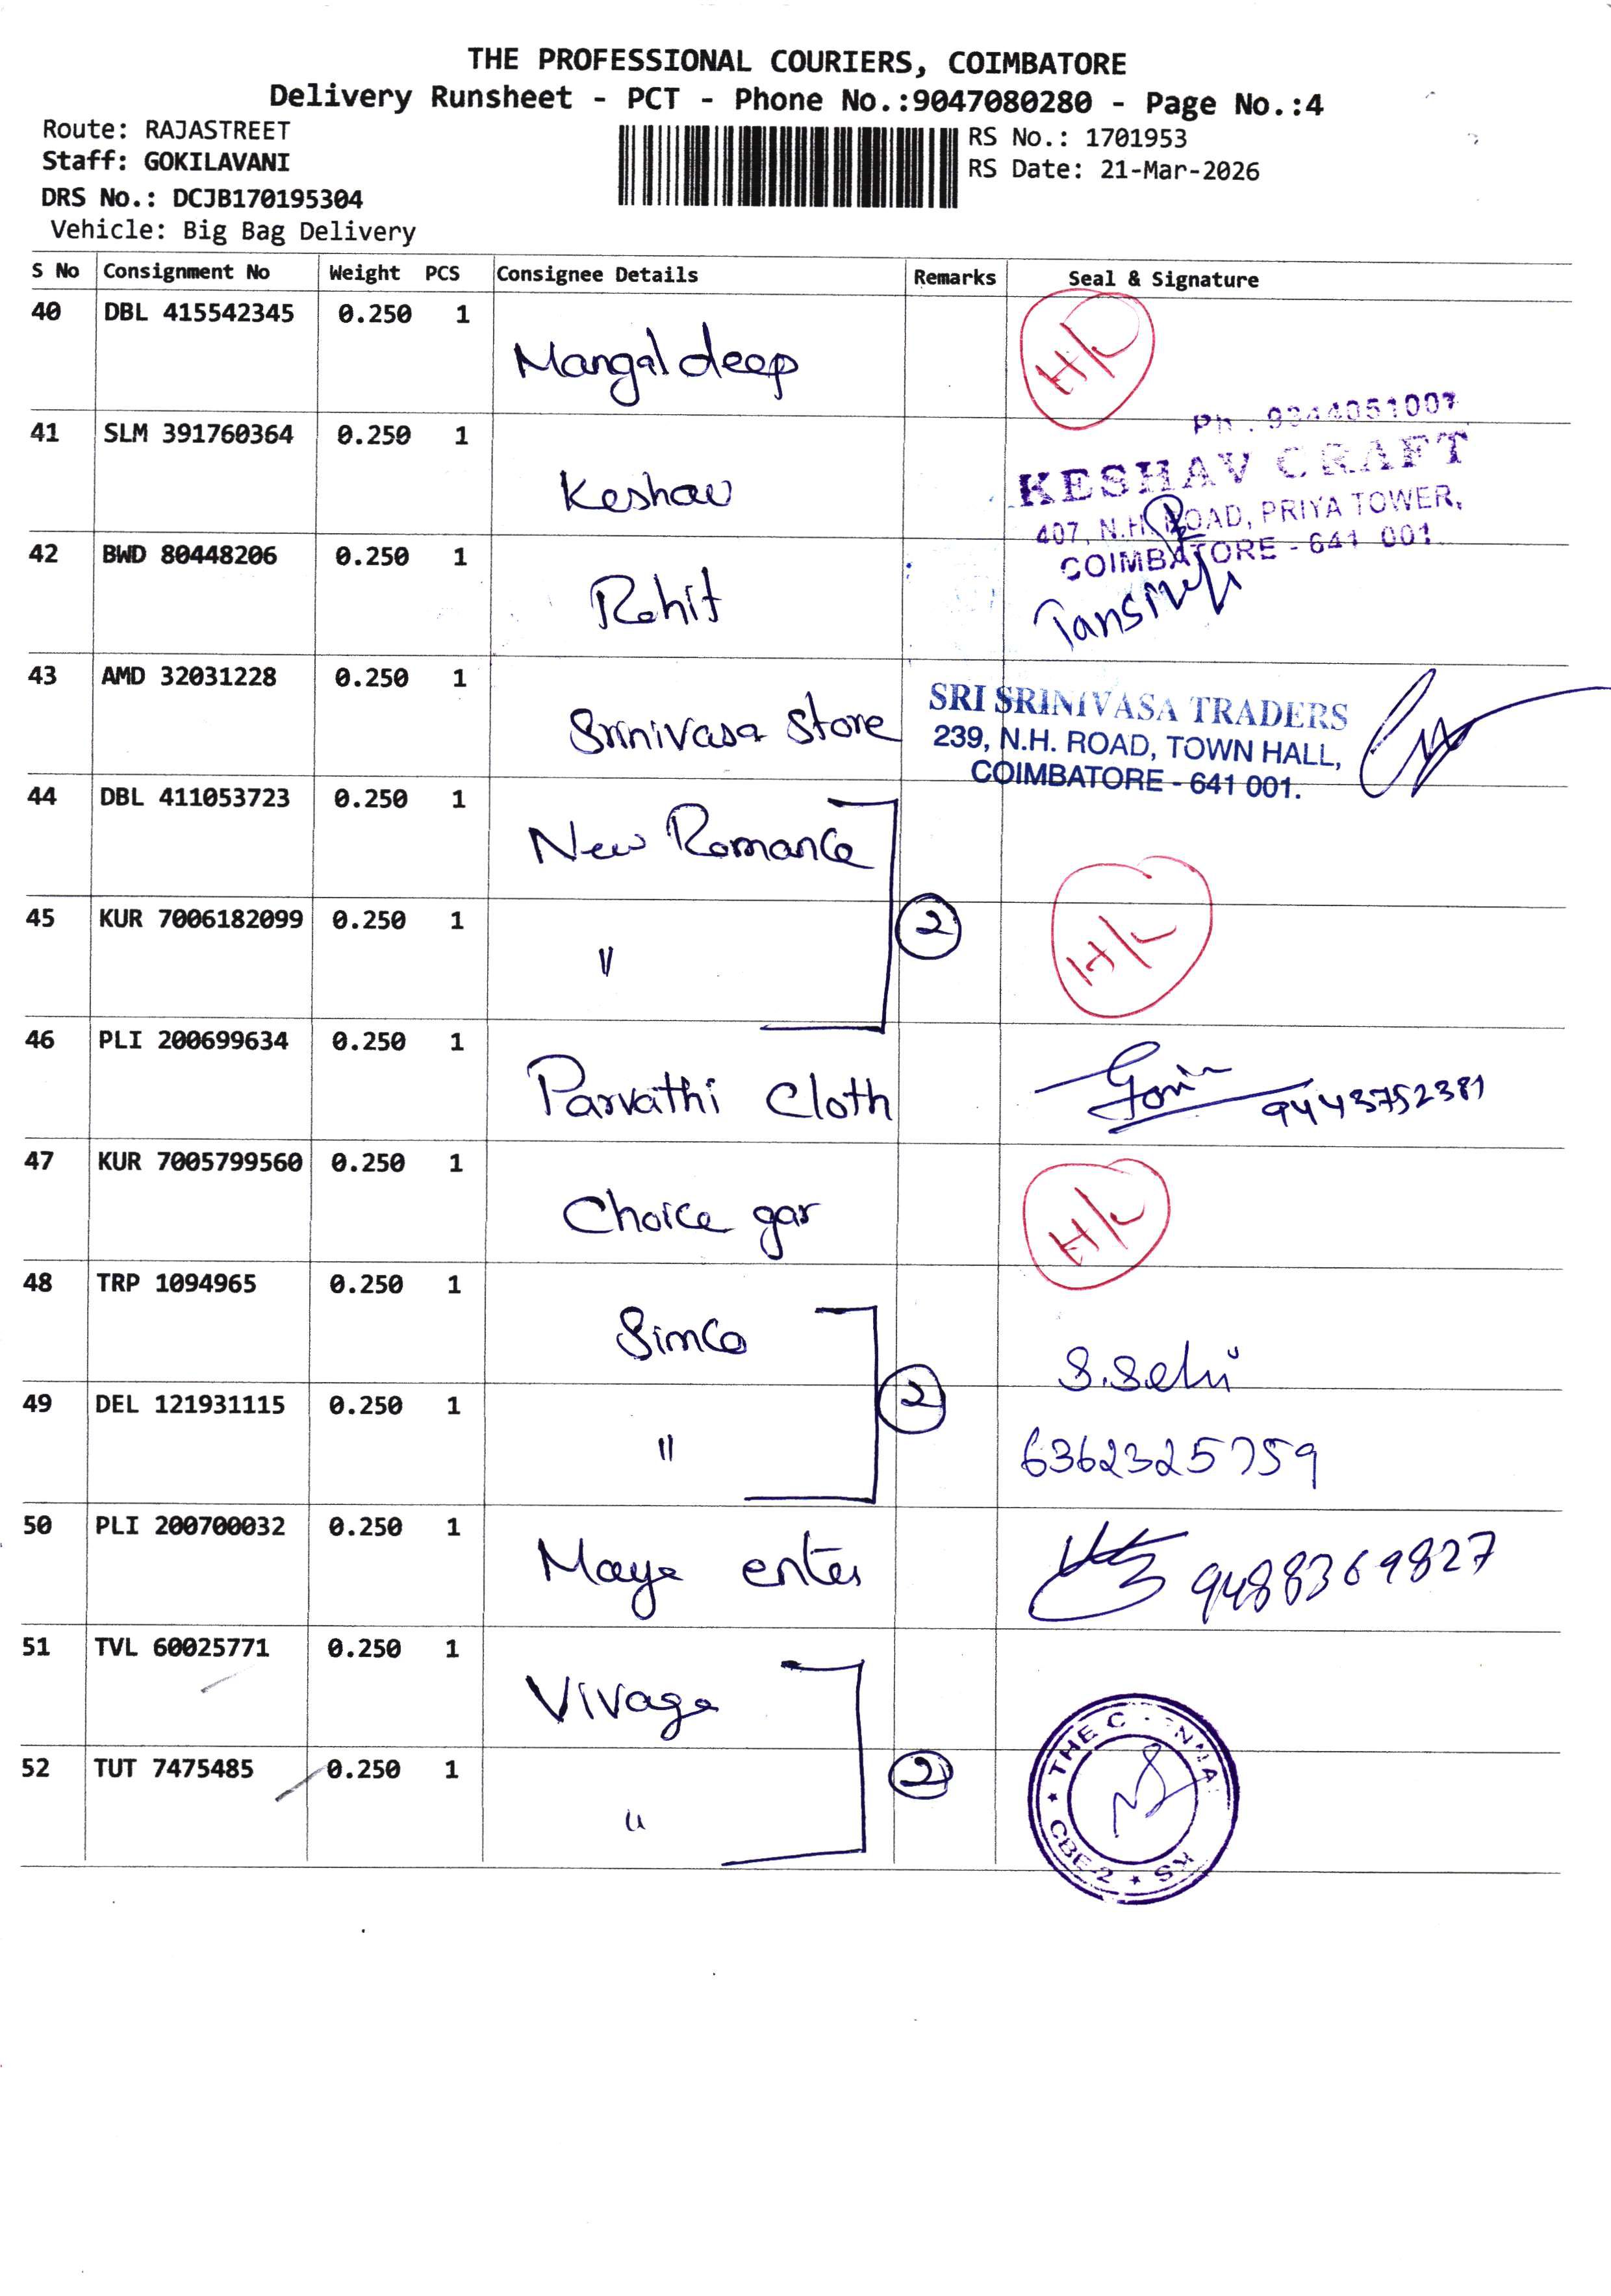 THE PROFESSIONAL COURIERS, COIMBATORE
Delivery Runsheet - PCT - Phone No.:9047080280 - Page No.:4
Route: RAJASTREET
RS No.: 1701953
Staff: GOKILAVANI
RS Date: 21-Mar-2026
DRS No.: DCJB170195304
Vehicle: Big Bag Delivery
S No Consignment No Weight PCS Consignee Details Remarks Seal & Signature
40 DBL 415542345 0.250 1
Mangal deep
Ph. 9344051007
41 SLM 391760364 0.250 1
KESHAV CRAFT
Keshav
407, N.H. ROAD, PRIYA TOWER,
COIMBATORE - 641 001.
42 BWD 80448206 0.250 1
Rohit
43 AMD 32031228 0.250 1
SRI SRINIVASA TRADERS
Srinivasa Store
239, N.H. ROAD, TOWN HALL,
COIMBATORE - 641 001.
44 DBL 411053723 0.250 1
New Romance
45 KUR 7006182099 0.250 1
" 2
H/L
46 PLI 200699634 0.250 1
Parvathi Cloth
9443752381
47 KUR 7005799560 0.250 1
Choice gar
H/L
48 TRP 1094965 0.250 1
Simco
49 DEL 121931115 0.250 1
" 2
6362325759
50 PLI 200700032 0.250 1
Maya enter
9488369827
51 TVL 60025771 0.250 1
Vivaga
52 TUT 7475485 0.250 1
" 2
THE C
CBE-2